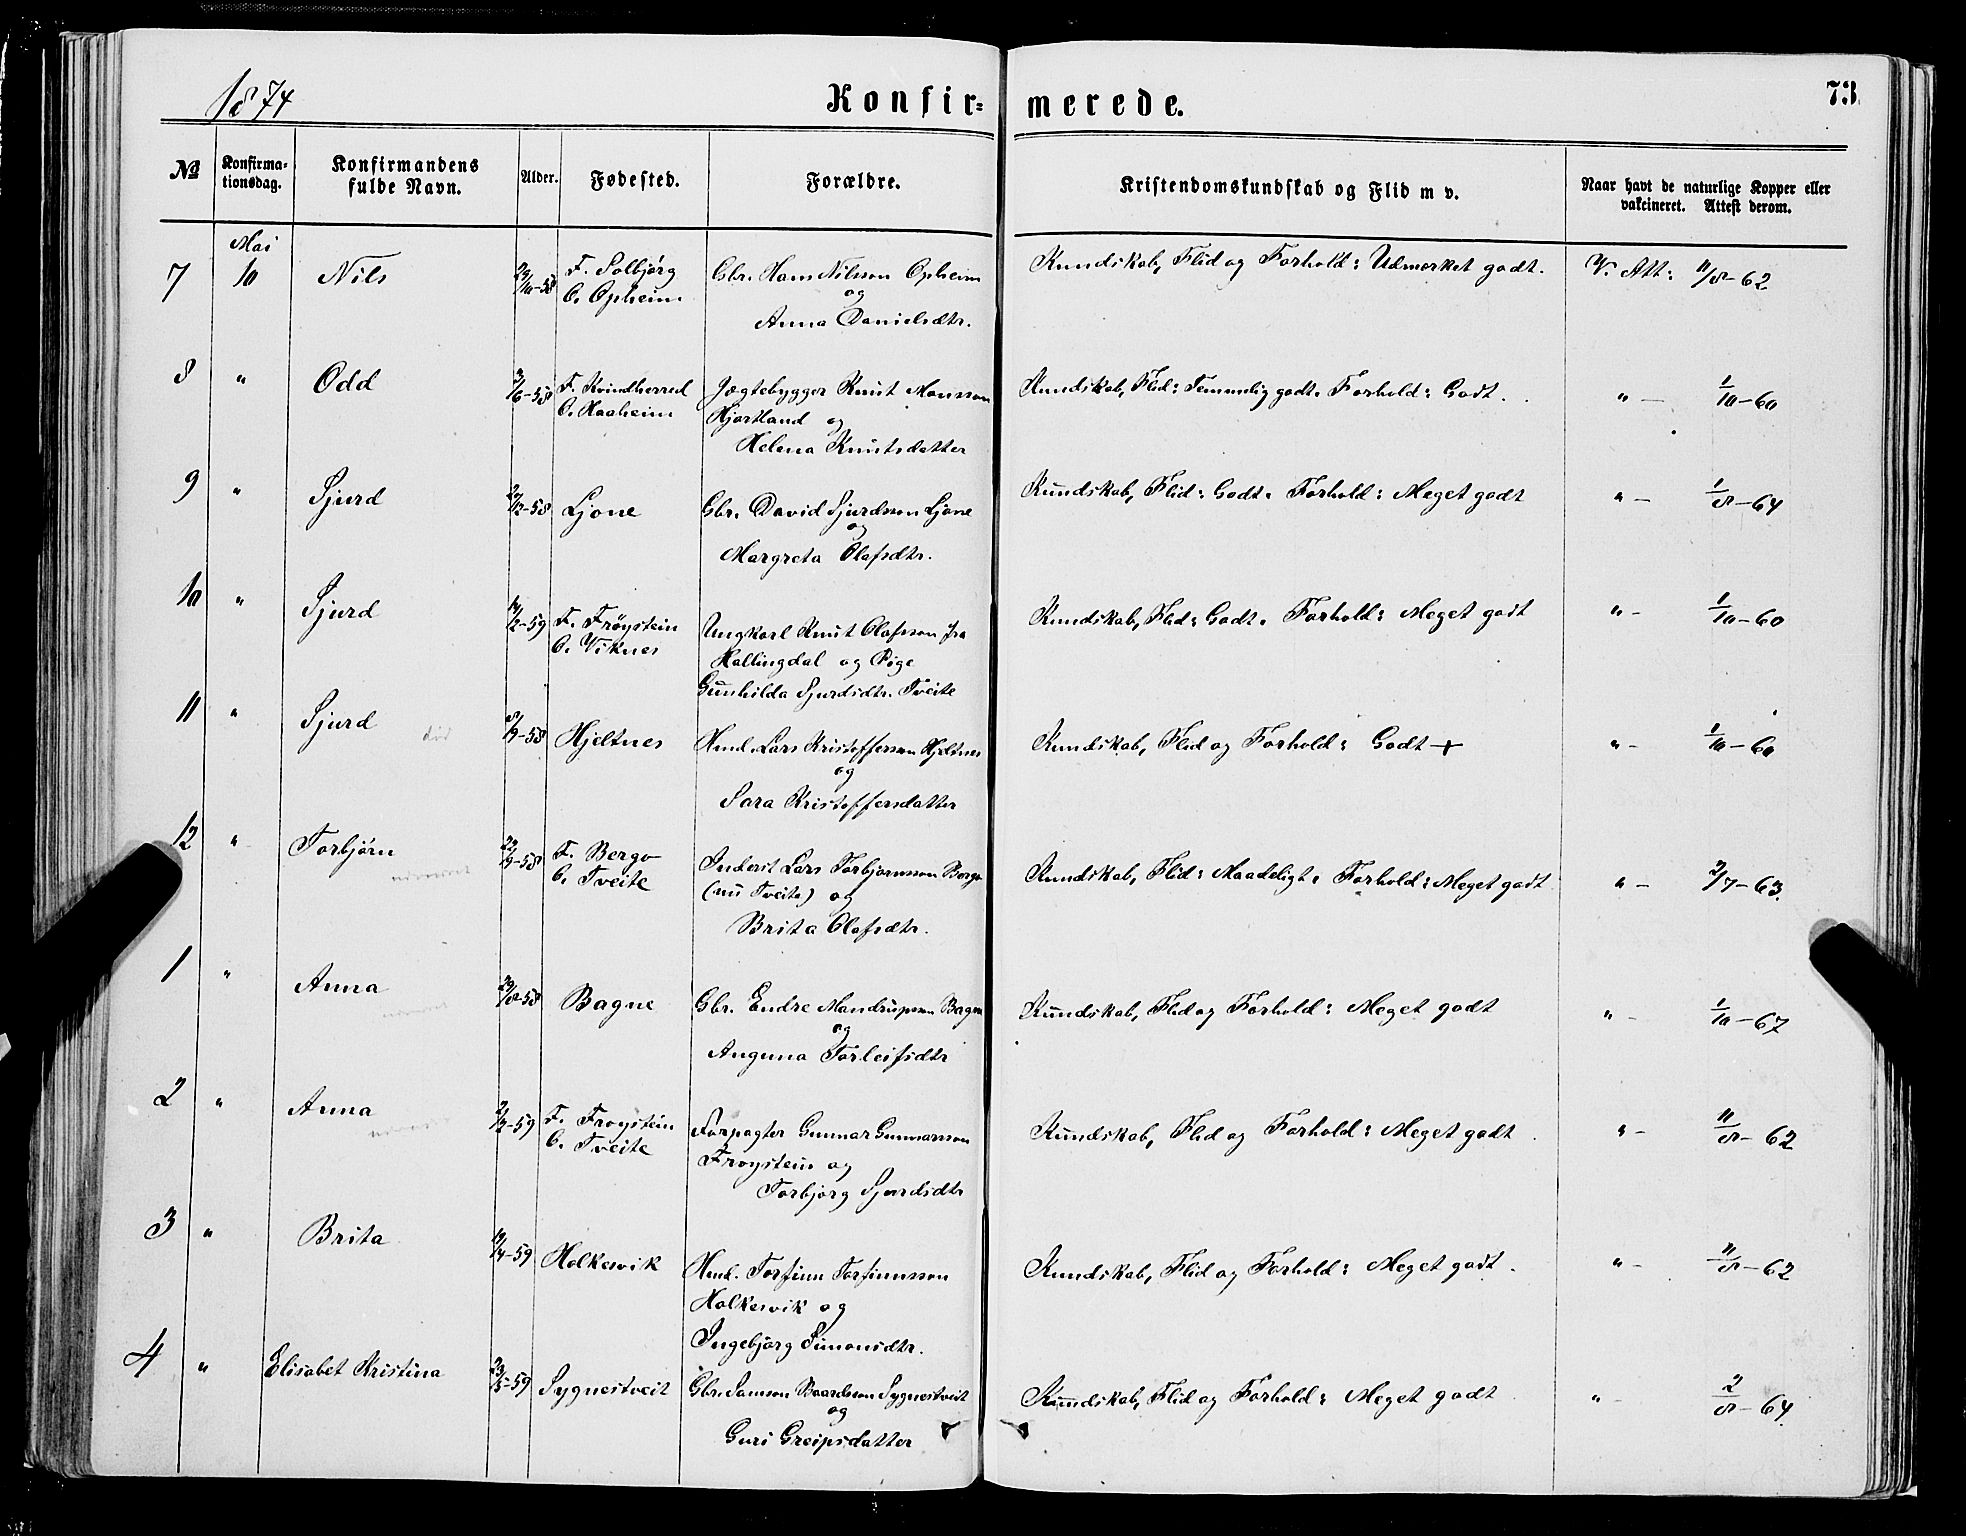 1874
Konfir-
merede.
73.
№
Konfirma-
tionsdag.
Konfirmandens
fulde Navn.
Alder.
Fødested.
Forældre.
Kristendomskundskab og Flid m v.
Naar havt de naturlige Kopper eller
vakcineret. Attest derom.
Mai
7 10 Nils 29/10-58 F. Solbjørg
O. Opheim
Gbr. Hans Nilsson Opheim
og
Anna Danielsdtr.
Kundskab, Flid og Forhold: Udmerket godt. V. Att: 11/8-62
8 " Odd /6-58 F. Kvindherred
O. Haaheim
Jægtebygger Knut Monsson
Hjortland og
Helena Knutsdatter
Kundskab, Flid: Temmelig godt. Forhold: Godt. " — 1/10-60
9 " Sjurd /12-58 Ljone
Gbr. David Sjurdsson Ljone
og
Margreta Olafsdtr.
Kundskab, Flid: Godt. Forhold: Meget godt " — 1/8-64
10 " Sjurd 14/2-59 F. Frøystein
O. Viknes
Ungkarl Knut Olafsson fra
Hallingdal og Pige
Gunhilda Sjurdsdtr. Tveite
Kundskab, Flid: Godt. Forhold: Meget godt " — 1/10-60
11 " Sjurd død 8/9-58 Hjeltnes
Hmd. Lars Kristoffersson Hjeltnes
og
Sara Kristoffersdatter
Kundskab, Flid og Forhold: Godt + " — 1/10-60
12 " Torbjørn 22/9-58 F. Bergo
O. Tveite
Inderst Lars Torbjørnsson Bergo
(nu Tveite) og
Brita Olafsdtr.
Kundskab, Flid: Maadeligt. Forhold: Meget godt " — 2/7-63.
1 " Anna 29/8-58 Bagne
Gbr. Endre Mandrupson Bagne
og
Angunna Torleifsdtr
Kundskab, Flid og Forhold: Meget godt " — 1/10-67
2 " Anna 2/2-59 F. Froystein
O. Tveite
Forpagter Gunnar Gunnarsson
Froystein og
Torbjørg Sjurdsdtr
Kundskab, Flid og Forhold: Meget godt " — 11/8-62
3 " Brita 19/4-59 Holkesvik
Hmd. Torfinn Torfinnsson
Holkesvik og
Ingebjørg Simonsdtr.
Kundskab, Flid og Forhold: Meget godt. " — 11/8-62
4 " Elisabet Kristina 23/5-59 Sygnestveit
Gbr. Samson Baardsson Sygnestveit
og
Guri Greipsdatter
Kundskab, Flid og Forhold: Meget godt " — 2/8-64.